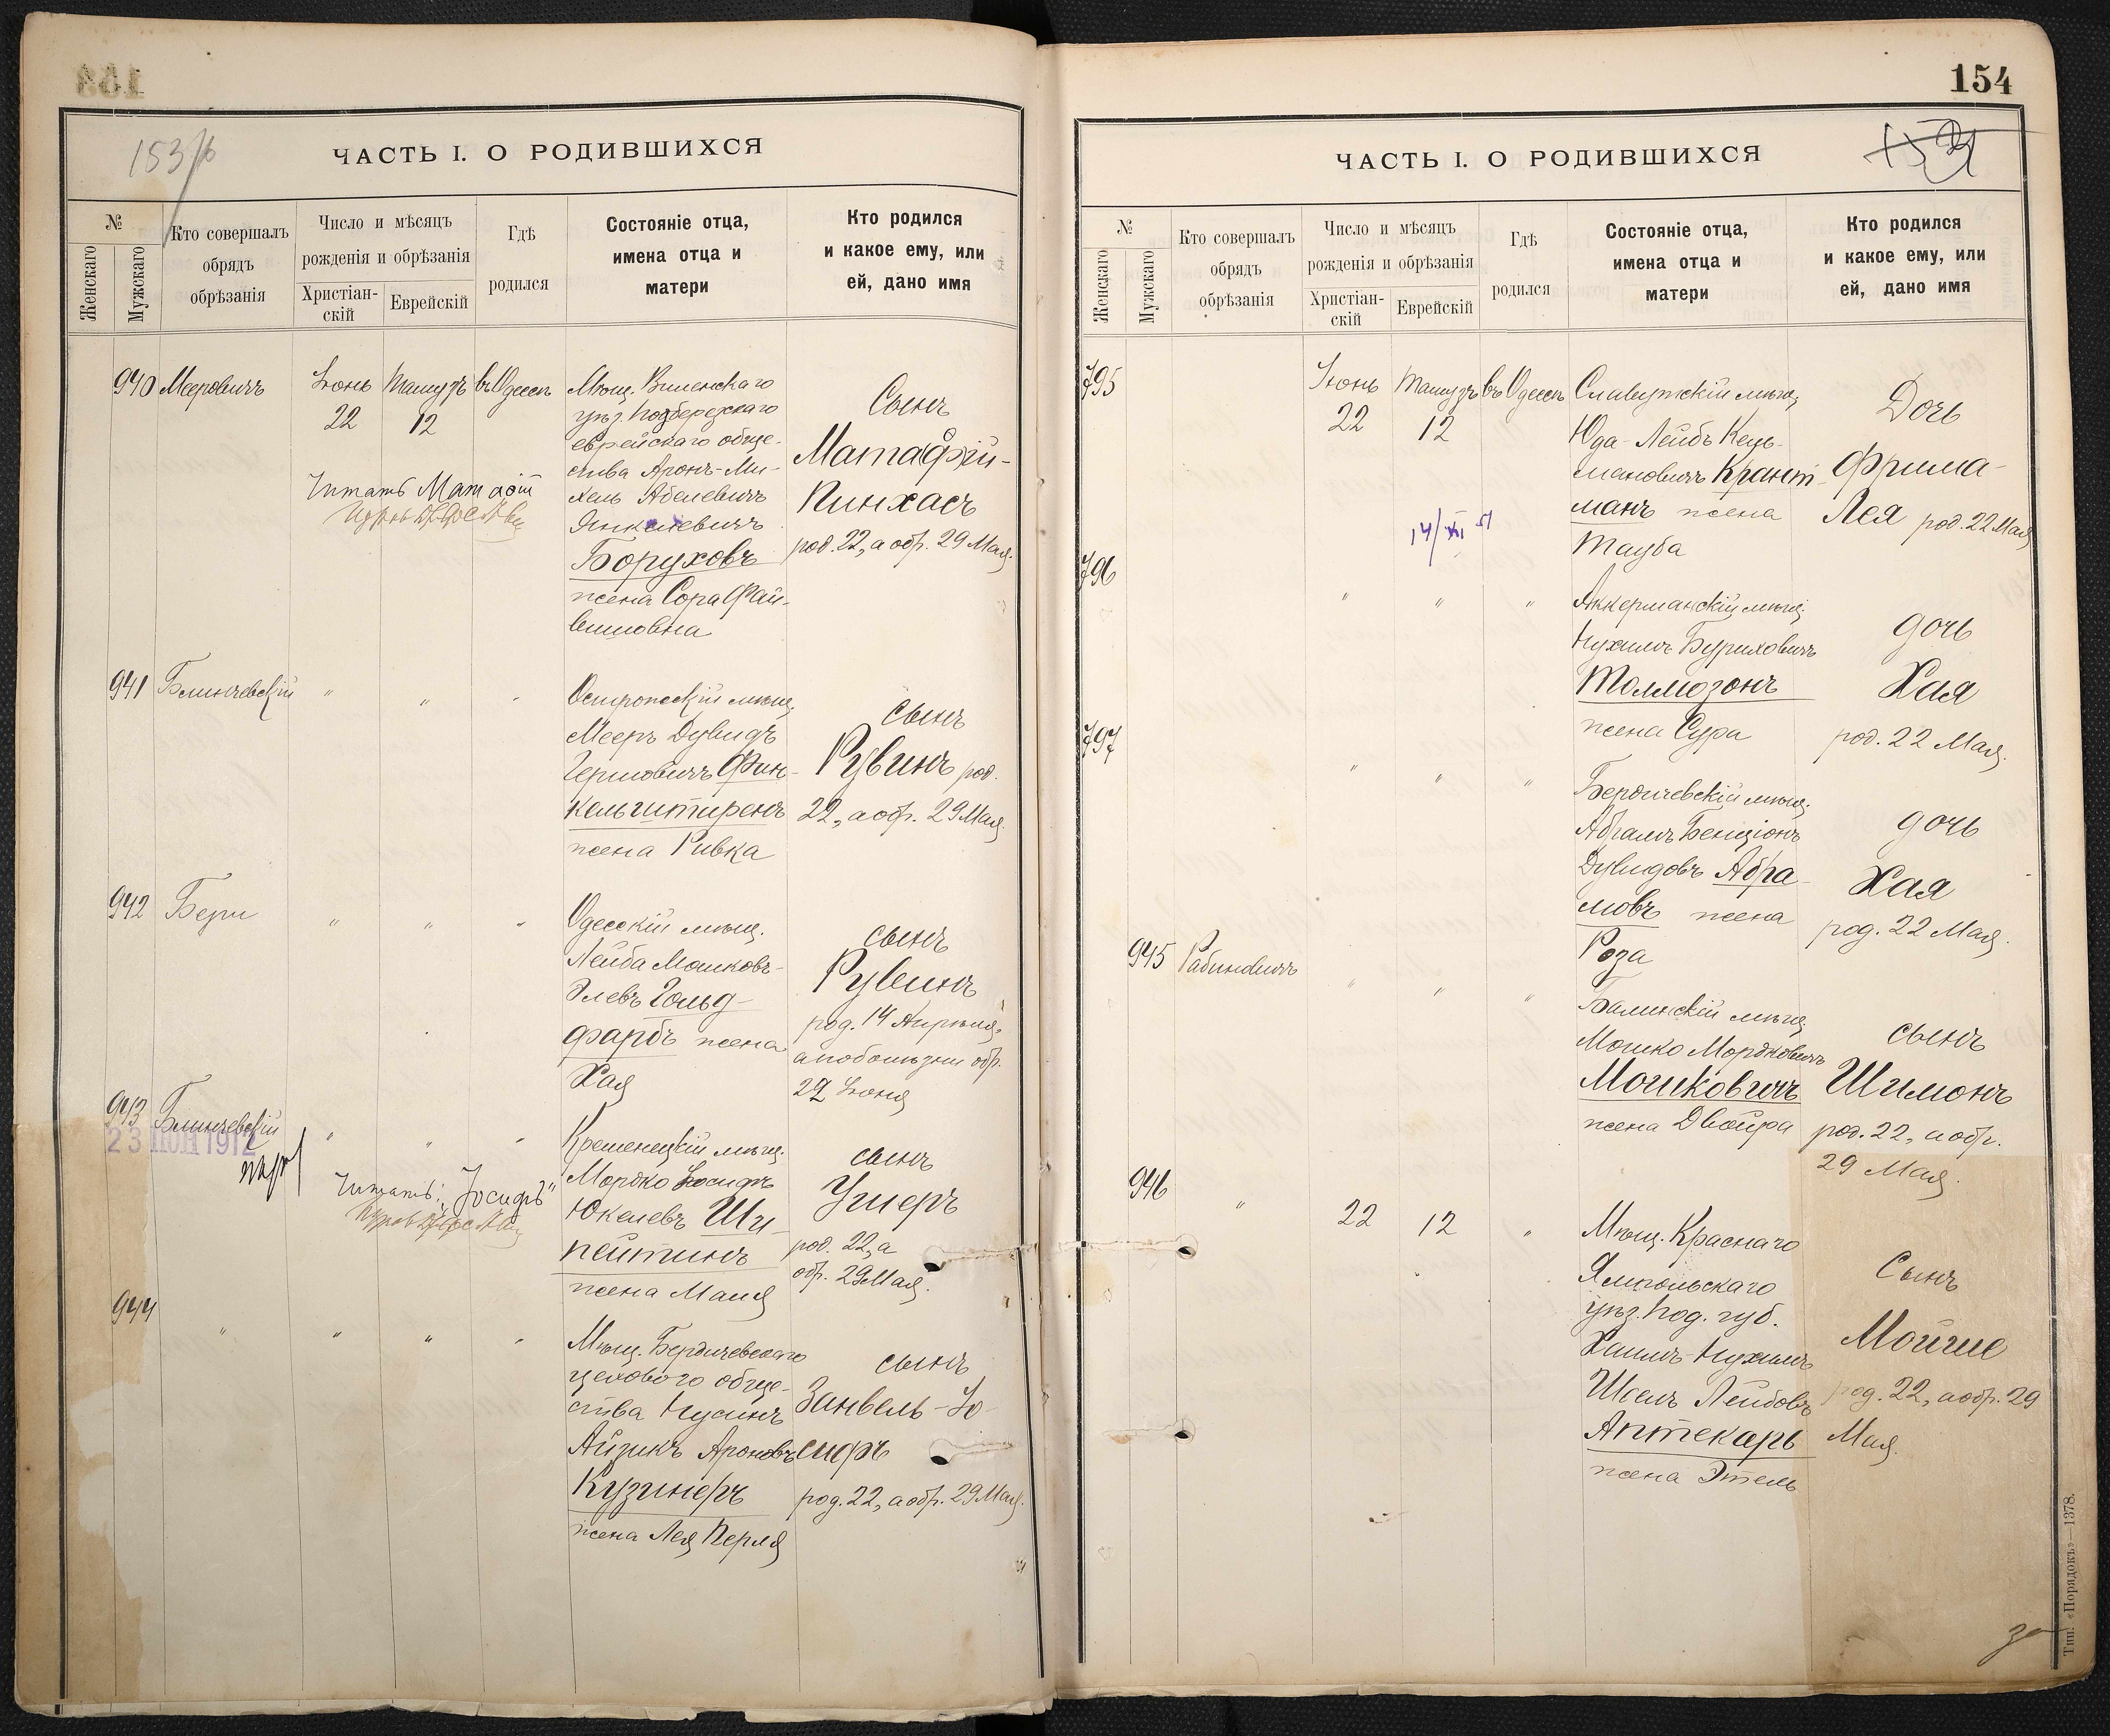 153
153/б
ЧАСТЬ I. О РОДИВШИХСЯ
№
Женскаго
Мужскаго
Кто совершалъ
обрядъ
обрѣзанія
Число и мѣсяцъ
рожденія и обрѣзанія
Христіан-
скій
Еврейскій
Гдѣ
родился
Состояніе отца,
имена отца и
матери
Кто родился
и какое ему, или
ей, дано имя
940 Мееровичъ
Іюнь
22
Тамузъ
12
въ Одессѣ
Мѣщ. Виленскаго
уѣз. Подберезскаго
еврейскаго обще-
ства Аронъ-Ми-
хель Абелевичъ
Янкелевичъ
Боруховъ
жена Сора Фай-
вишовна
Сынъ
Мата(ф)ій-
Пинхасъ
род. 22, а обр. 29 Мая.
Читать
941 Блинчевскій
" " "
Остропскій мѣщ.
Мееръ Дувидъ
Гершовичъ Фин-
кельштиренъ
жена Ривка
сынъ
Рувинъ род.
22, а обр. 29 Мая.
942 Бери
" " "
Одесскій мѣщ.
Лейба Мошковъ-
Элевъ Гольд-
фарбъ жена
Хая
сынъ
Рувинъ
род. 14 Апрѣля,
а по болѣзни обр.
22 Іюня
943 Блинчевскій
23 ІЮН 1912
" " "
Читать: „Іосифъ"
Кременецкій мѣщ.
Мордко Іосифъ
Юкелевъ Ши-
пейтинъ
жена Маня
сынъ
Ушеръ
род. 22, а
обр. 29 Мая.
944
" " " "
Мѣщ. Бердичевскаго
цехового обще-
ства Нусинъ
Айзикъ Ароновъ
Кузинеръ
жена Лея Перля
сынъ
Занвель-Іо-
сифъ
род. 22, а обр. 29 Мая.
154
ЧАСТЬ I. О РОДИВШИХСЯ
№
Женскаго
Мужскаго
Кто совершалъ
обрядъ
обрѣзанія
Число и мѣсяцъ
рожденія и обрѣзанія
Христіан-
скій
Еврейскій
Гдѣ
родился
Состояніе отца,
имена отца и
матери
Кто родился
и какое ему, или
ей, дано имя
795
Іюнь
22
Тамузъ
12
въ Одессѣ
14/XI 51
Славутскій мѣщ.
Юда-Лейбъ Кель-
мановичъ Крант-
манъ жена
Тауба
Дочь
Фрима-
Лея род. 22 Мая
796
" " "
Аккерманскій мѣщ.
Нухимъ Буриховичъ
Толмозонъ
жена Сура
дочь
Хая
род. 22 Мая.
797
" " "
Бердичевскій мѣщ.
Абрамъ Бенціонъ
Дувидовъ Абра-
мовъ жена
Роза
дочь
Хая
род. 22 Мая.
945 Рабиновичъ
" " "
Балинскій мѣщ.
Мошко Мордковичъ
Мошковичъ
жена Двойра
сынъ
Шимонъ
род. 22, а обр.
29 Мая.
946
"
22
12
"
Мѣщ. Краснаго
Ямпольскаго
уѣз. Под. губ.
Хаимъ-Нухимъ
Шоелъ Лейбовъ
Аптекарь
жена Этель
Сынъ
Мойше
род. 22, а обр. 29
Мая.
Тип. «Порядокъ»—1378.